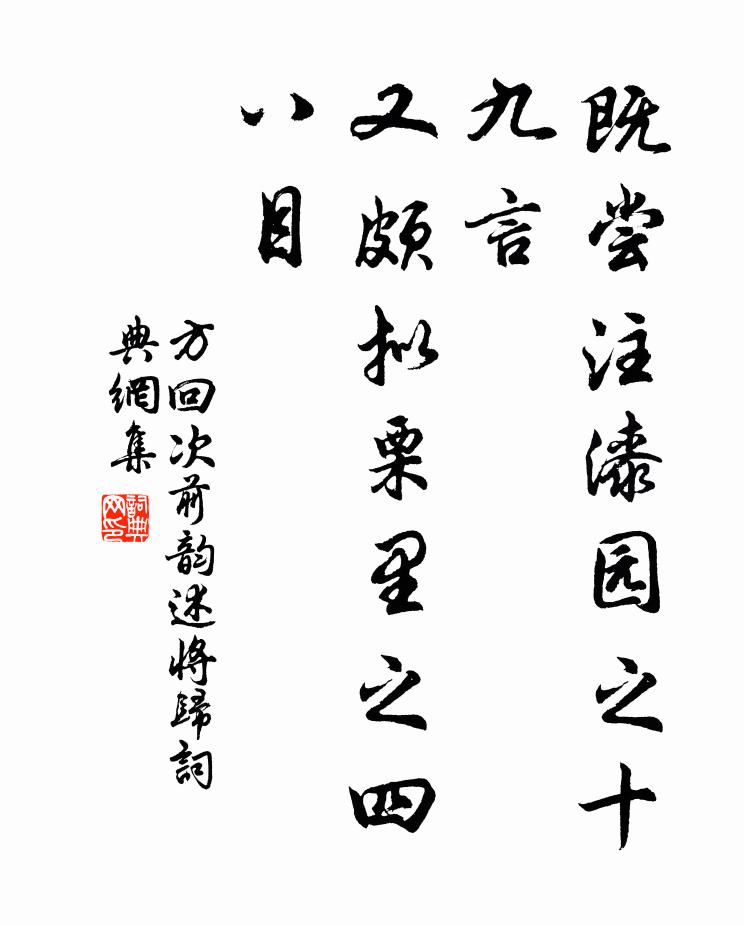 既尝注漆园之十
九言
又颇拟栗里之四
八目
方回次前韵述将歸詞
典網集
詞典网印